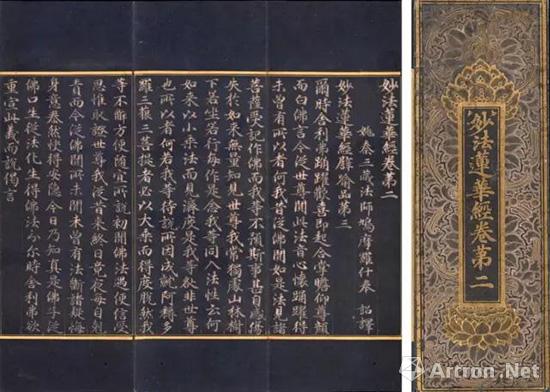 妙法蓮華經卷第二
姚秦三藏法師鳩摩羅什奉 詔譯
妙法蓮華經譬喻品第三
爾時舍利弗踊躍歡喜即起合掌瞻仰尊顏
而白佛言今從世尊聞此法音心懷踊躍得
未曾有所以者何我昔從佛聞如是法見諸
菩薩受記作佛而我等不預斯事甚自感傷
失於如來無量知見世尊我常獨處山林樹
下若坐若行每作是念我等同入法性云何
如來以小乘法而見濟度是我等咎非世尊
也所以者何若我等待說所因成就阿耨多
羅三藐三菩提者必以大乘而得度脫然我
等不解方便隨宜所說初聞佛法遇便信受
思惟取證世尊我從昔來終日竟夜每自剋
責而今從佛聞所未聞未曾有法斷諸疑悔
身意泰然快得安隱今日乃知真是佛子從
佛口生從法化生得佛法分尒時舍利弗欲
重宣此義而說偈言
妙法蓮華經卷第二
Artron.Net